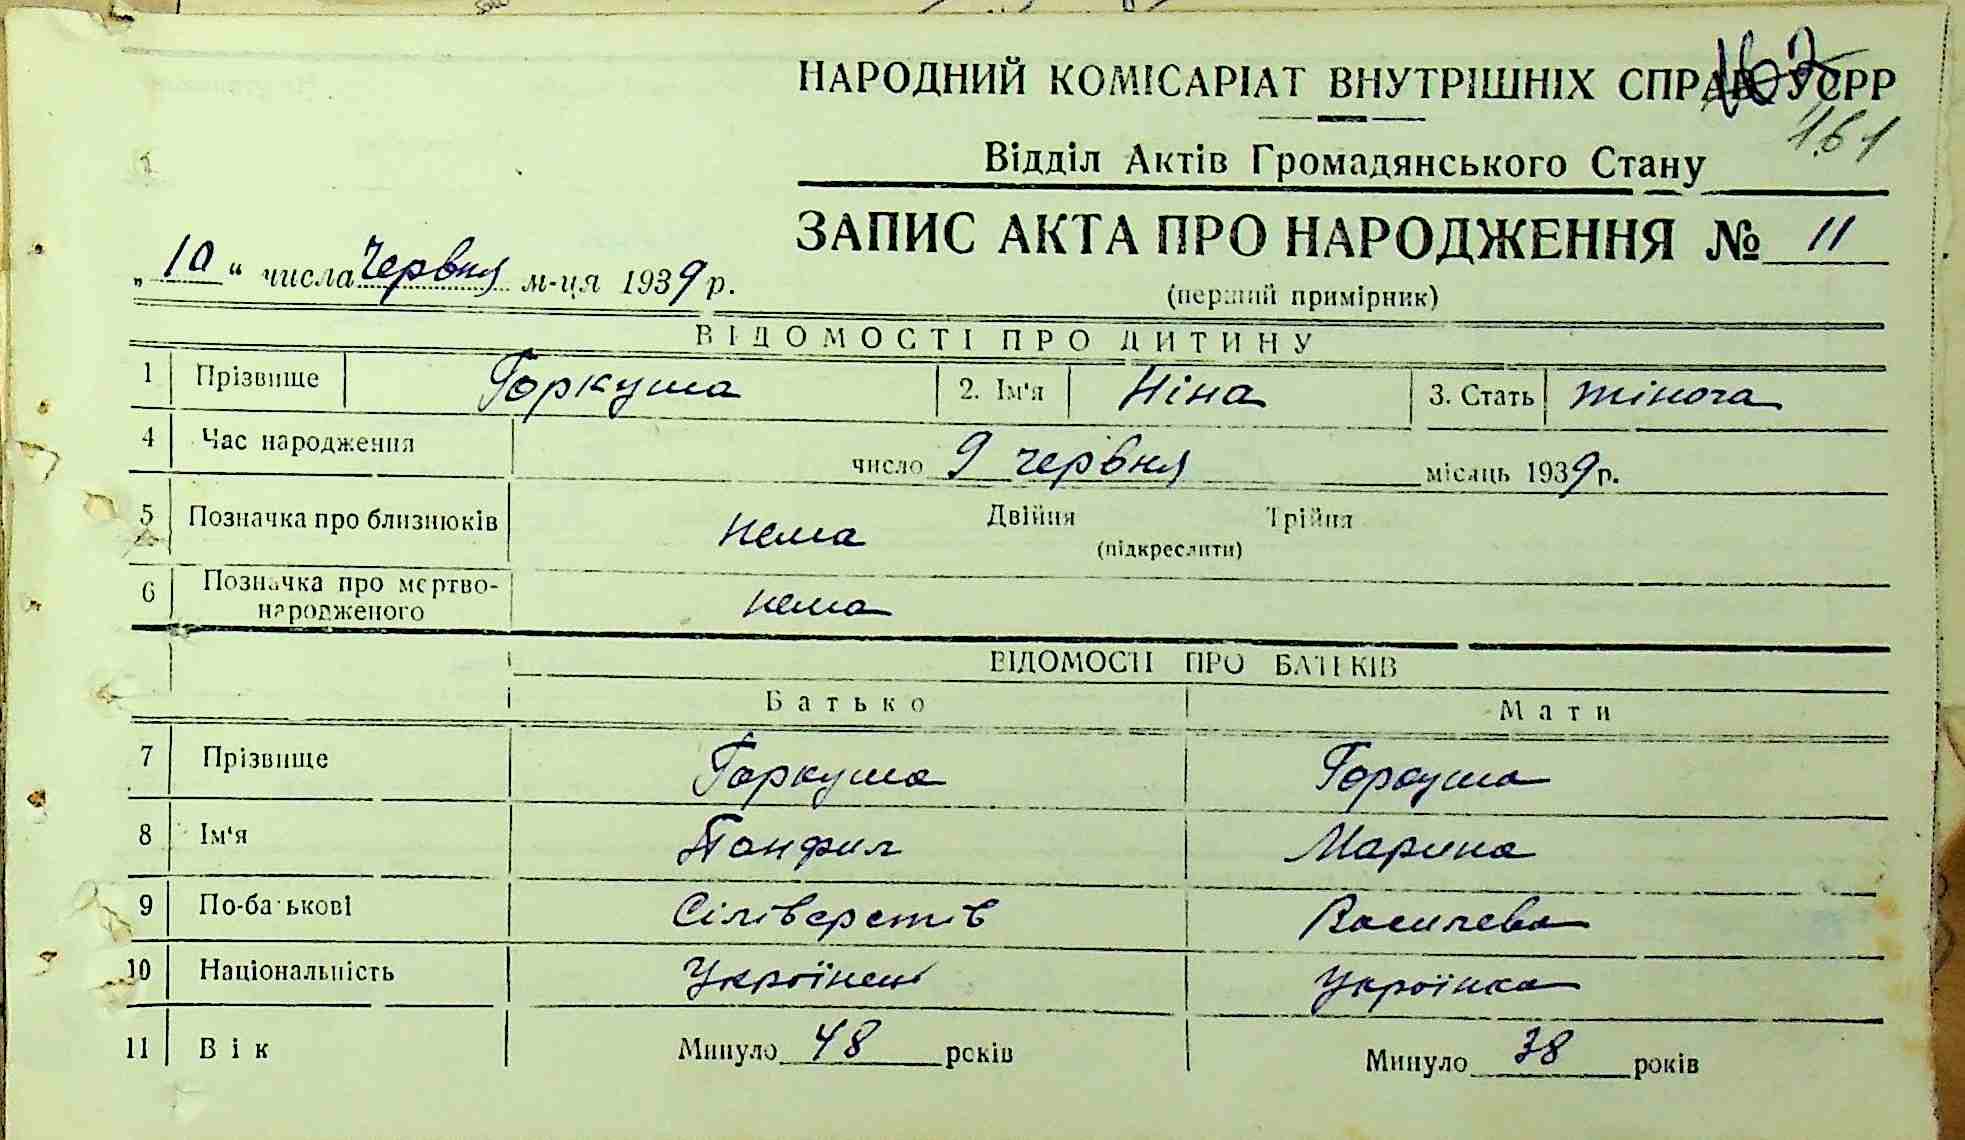 162
НАРОДНИЙ КОМІСАРІАТ ВНУТРІШНІХ СПРАВ УСРР
161
Відділ Актів Громадянського Стану
ЗАПИС АКТА ПРО НАРОДЖЕННЯ № 11
„10“ числа Червня м-ця 1939 р.
(перший примірник)
ВІДОМОСТІ ПРО ДИТИНУ
1 Прізвище Горкуша 2. Ім'я Ніна 3. Стать жіноча
4 Час народження число 9 червня місяць 1939 р.
5 Позначка про близнюків нема Двійня Трійня
(підкреслити)
6 Позначка про мертво-
народженого нема
ВІДОМОСТІ ПРО БАТЬКІВ
Батько Мати
7 Прізвище Горкуша Горкуша
8 Ім'я Панфил Марина
9 По-батькові Сіліверстів Василева
10 Національність Українець Українка
11 Вік Минуло 48 років Минуло 38 років